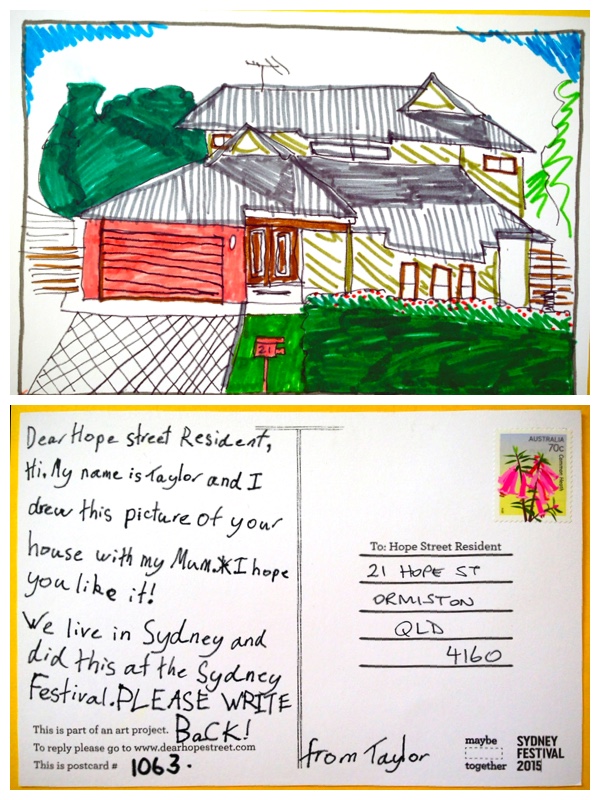 21
Dear Hope street Resident,
Hi. My name is Taylor and I
drew this picture of your
house with my Mum.* I hope
you like it!
We live in Sydney and
did this at the Sydney
Festival. PLEASE WRITE
BaCK!
This is part of an art project.
To reply please go to www.dearhopestreet.com
This is postcard # 1063.
from Taylor
AUSTRALIA
70c
Common Heath
To: Hope Street Resident
21 HOPE ST
ORMISTON
QLD
4160
maybe
together
SYDNEY
FESTIVAL
2015